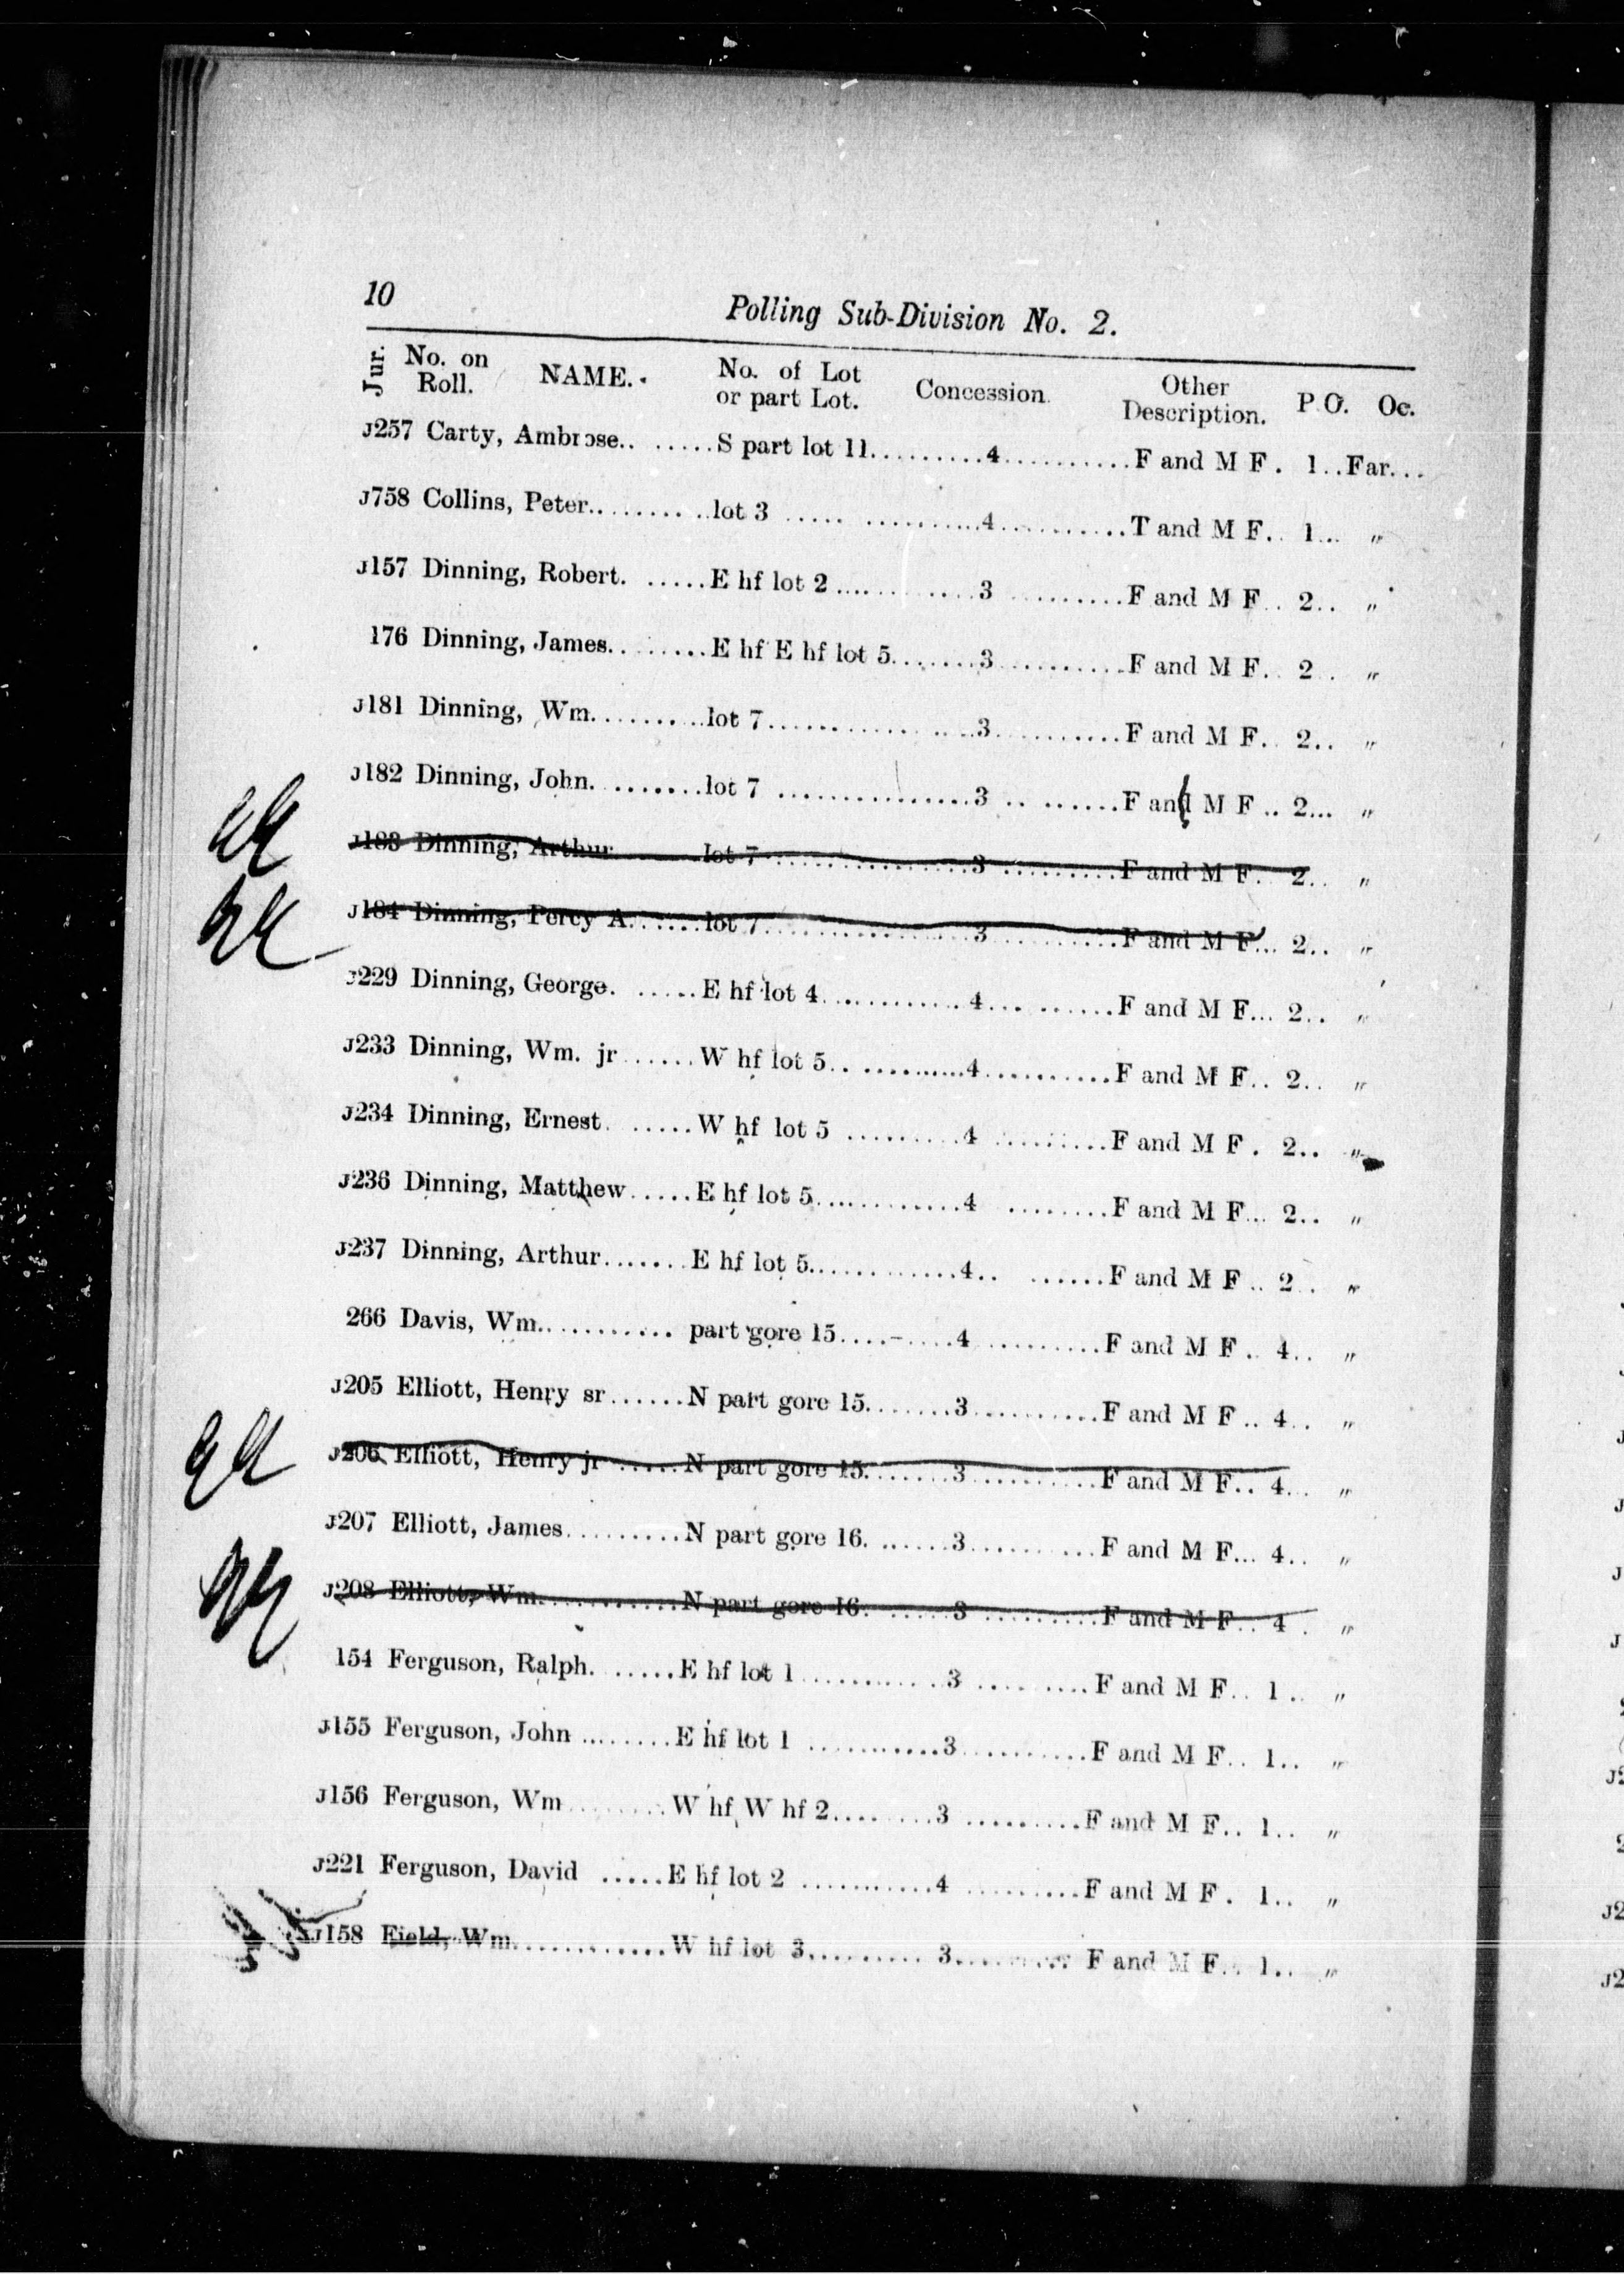 10
Polling Sub-Division No. 2.
Jur. No. on Roll. NAME. No. of Lot or part Lot. Concession. Other Description. P.O. Oc.
J257 Carty, Ambrose........S part lot 11..........4...........F and M F. 1..Far...
J758 Collins, Peter...........lot 3 ..... ...........4...........T and M F.. 1... "
J157 Dinning, Robert. ......E hf lot 2..............3 ..........F and M F.. 2.. "
176 Dinning, James.........E hf E hf lot 5........3...........F and M F.. 2.. "
J181 Dinning, Wm...........lot 7...................3............F and M F.. 2.. "
J182 Dinning, John. ........lot 7 ................3 .. .......F and M F .. 2... "
J183 Dinning, Arthur........lot 7.................3 ..........F and M F.. 2.. "
J184 Dinning, Percy A.......lot 7.................3...........F and M F... 2.. "
J229 Dinning, George. ......E hf lot 4.............4... .......F and M F... 2.. "
J233 Dinning, Wm. jr......W hf lot 5.. ..........4...........F and M F.. 2.. "
J234 Dinning, Ernest. ......W hf lot 5 ..........4 ..........F and M F. 2.. "
J236 Dinning, Matthew.....E hf lot 5.............4 .........F and M F... 2.. "
J237 Dinning, Arthur.......E hf lot 5.............4.. .......F and M F .. 2.. "
266 Davis, Wm............ part gore 15.........4...........F and M F.. 4.. "
J205 Elliott, Henry sr......N part gore 15........3...........F and M F.. 4.. "
J206 Elliott, Henry jr......N part gore 15........3...........F and M F.. 4.. "
J207 Elliott, James.........N part gore 16. .......3...........F and M F... 4.. "
J208 Elliott, Wm............N part gore 16. ......3 ..........F and M F.. 4. "
154 Ferguson, Ralph. ......E hf lot 1.............3 ..........F and M F.. 1.. "
J155 Ferguson, John ........E hf lot 1 ............3...........F and M F.. 1.. "
J156 Ferguson, Wm.........W hf W hf 2.........3 ..........F and M F.. 1.. "
J221 Ferguson, David .....E hf lot 2 ............4 ..........F and M F. 1.. "
J158 Field, Wm.............W hf lot 3..........3.......... F and M F.. 1.. "